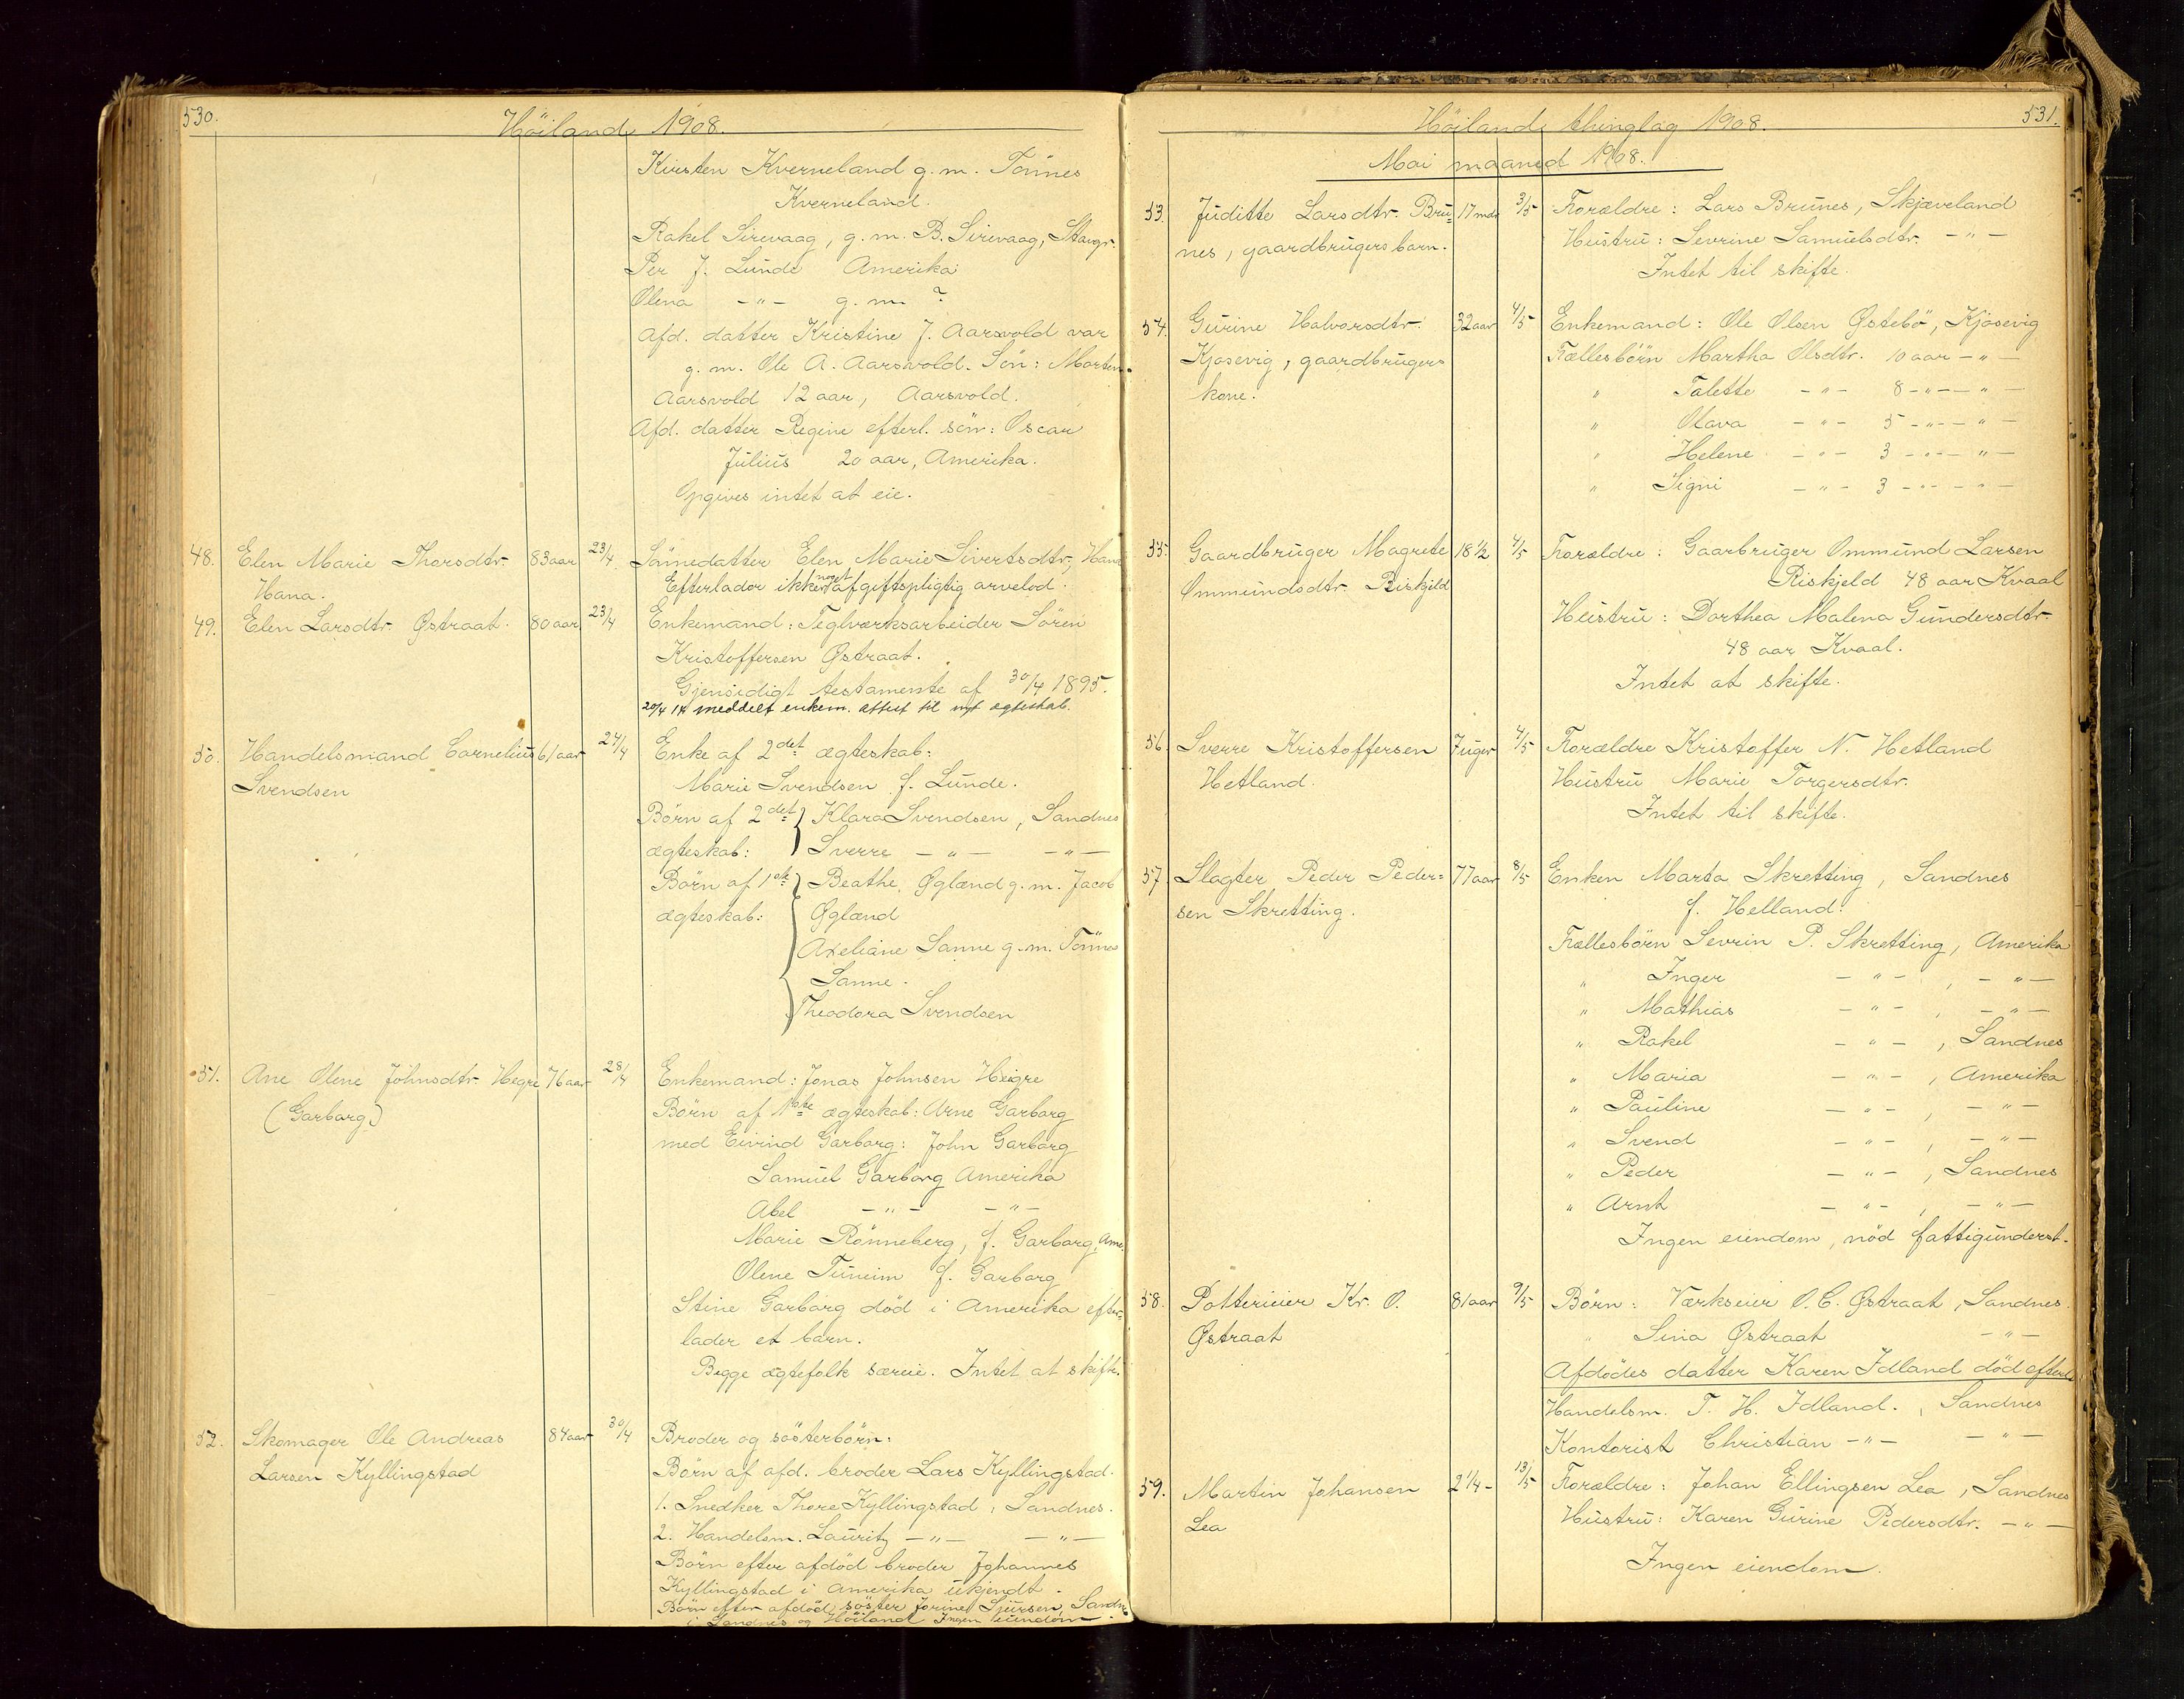 530.
Höiland 1908.
Kirsten Kverneland g. m. Tönnes
Kverneland.
Rakel Sirevaag, g. m. B. Sirevaag, Stavgr.
Per J. Lunde Amerika
Olena -"- g. m. ?
Afd. datter Kristine J. Aarsvold var
g. m. Ole A. Aarsvold. Sön: Morten
Aarsvold 12 aar, Aarsvold.
Afd. datter Regine efterl. sön: Oscar
Julius 20 aar, Amerika.
Opgives intet at eie.
48. Elen Marie Thorsdtr. 83 aar 23/4 Sönnedatter Elen Marie Sivertsdtr, Hana
Hana. Efterlader ikke noget afgiftspligtig arvelod.
49. Elen Larsdtr. Östraat. 80 aar 23/4 Enkemand: Teglværksarbeider Sören
Kristoffersen Østraat.
Gjensidigt testamente af 30/4 1895.
20/4 14 meddelt enkem. attest til nyt ægteskab.
50. Handelsmand Cornelius 61 aar 24/4 Enke af 2det ægteskab:
Svendsen Marie Svendsen f. Lunde.
Börn af 2det Klara Svendsen, Sandnes
ægteskab: Sverre -"- -"-
Börn af 1ste Beathe Øglænd g. m. Jacob
ægteskab: Øglænd
Axeliane Sanne g. m. Tönnes
Sanne.
Theodora Svendsen
51. Ane Olene Johnsdtr. Hegre 76 aar 28/4 Enkemand: Jonas Johnsen Heigre
(Garborg) Börn af 1ste ægteskab: Arne Garborg
med Eivind Garborg: John Garborg
Samuel Garborg Amerika
Abel -"- -"-
Marie Rönneberg, f. Garborg, Ame.
Olene Tuneim f. Garborg
Stine Garborg död i Amerika efter-
lader et barn.
Begge ægtefolk særeie. Intet at skifte.
52. Skomager Ole Andreas 84 aar 30/4 Broder og sösterbörn:
Larsen Kyllingstad Börn af afd. broder Lars Kyllingstad.
1. Snedker Thore Kyllingstad, Sandnes.
2. Handelsm. Lauritz -"- -"-
Börn efter afdöd broder Johannes
Kyllingstad i Amerika ukjendt.
Börn efter afdöd söster Jorine Sjursen, Sandn
i Sandnes og Höiland. Ingen eiendom.
Höiland thinglag 1908.
531.
Mai maaned 1908.
53. Juditte Larsdtr. Bru= 17 mdr 3/5 Forældre: Lars Brunes, Skjæveland
nes, gaardbrugers barn. Hustru: Sevrine Samuelsdtr. -"-
Intet til skifte.
54. Gurine Halvorsdtr. 32 aar 4/5 Enkemand: Ole Olsen Østebö, Kjosevig
Kjosevig, gaardbrugers Fællesbörn Martha Olsdtr. 10 aar -"-
kone. " Talette -"- 8 -"- -"-
" Olava -"- 5 -"- -"-
" Helene -"- 3 -"- -"-
" Signi -"- 3 -"- -"-
55. Gaardbruger Magrete 18 1/2 4/5 Forældre: Gaarbruger Ommund Larsen
Ommundsdtr. Riskjeld Riskjeld 48 aar Kvaal
Hustru: Dorthea Malena Gundersdtr.
48 aar Kvaal.
Intet at skifte.
56. Sverre Kristoffersen 7 uger 4/5 Forældre Kristoffer N. Hetland
Hetland. Hustru Marie Torgersdtr.
Intet til skifte.
57. Slagter Peder Peder= 77 aar 8/5 Enken Marta Skretting, Sandnes
sen Skretting. f. Helland.
Fællesbörn Sevrin P. Skretting, Amerika
" Inger -"- , -"-
" Mathias -"- , -"-
" Rakel -"- , Sandnes
" Maria -"- , Amerika
" Pauline -"- , -"-
" Svend -"- , -"-
" Peder -"- , Sandnes
" Arnt -"- , -"-
Ingen eiendom, nöd fattigunderst.
58. Potterieier Kr. O. 81 aar 9/5 Börn: Værkseier O. C. Østraat, Sandnes.
Østraat " Sina Østraat -"-
Afdödes datter Karen Idland död efterl.
Handelsm. T. H. Idland., Sandnes
Kontorist Christian -"- -"-
59. Martin Johansen 2 1/4 - 13/5 Forældre: Johan Ellingsen Lea, Sandnes
Lea Hustru: Karen Gurine Pedersdtr. -"-
Ingen eiendom.